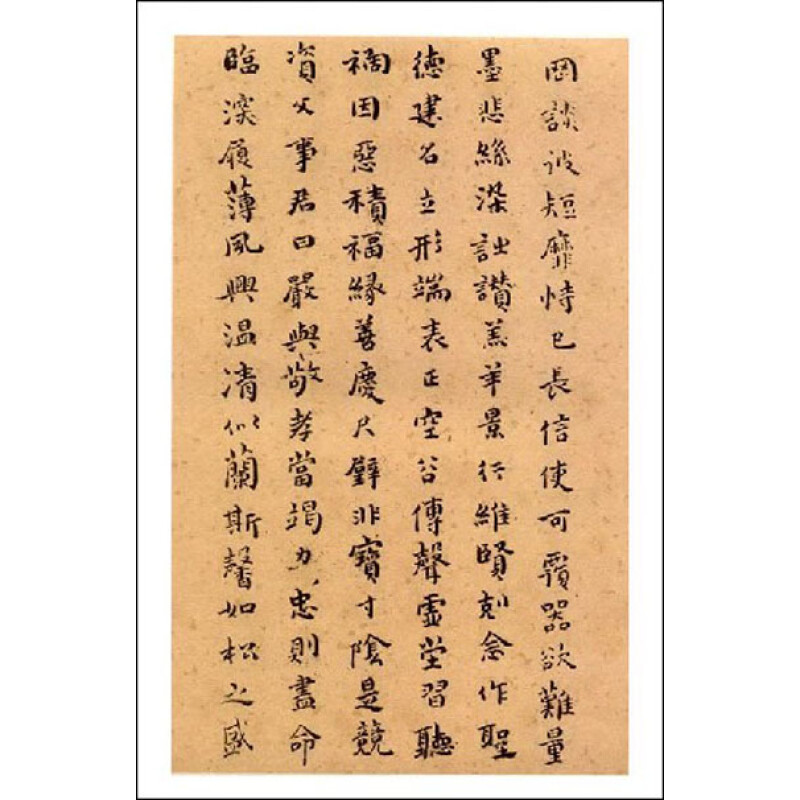 罔談彼短靡恃己長信使可覆器欲難量
墨悲絲染詩讚羔羊景行維賢剋念作聖
德建名立形端表正空谷傳聲虛堂習聽
禍因惡積福緣善慶尺璧非寶寸陰是競
資父事君曰嚴與敬孝當竭力忠則盡命
臨深履薄夙興溫凊似蘭斯馨如松之盛